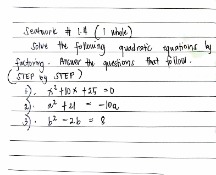 Seatwork # 1.4 (1 whole)
Solve the following quadratic equations by
factoring. Answer the questions that follow.
(STEP by STEP)
1). x² + 10x + 25 = 0
2). a² + 21 = -10a
3). b² - 2b = 8